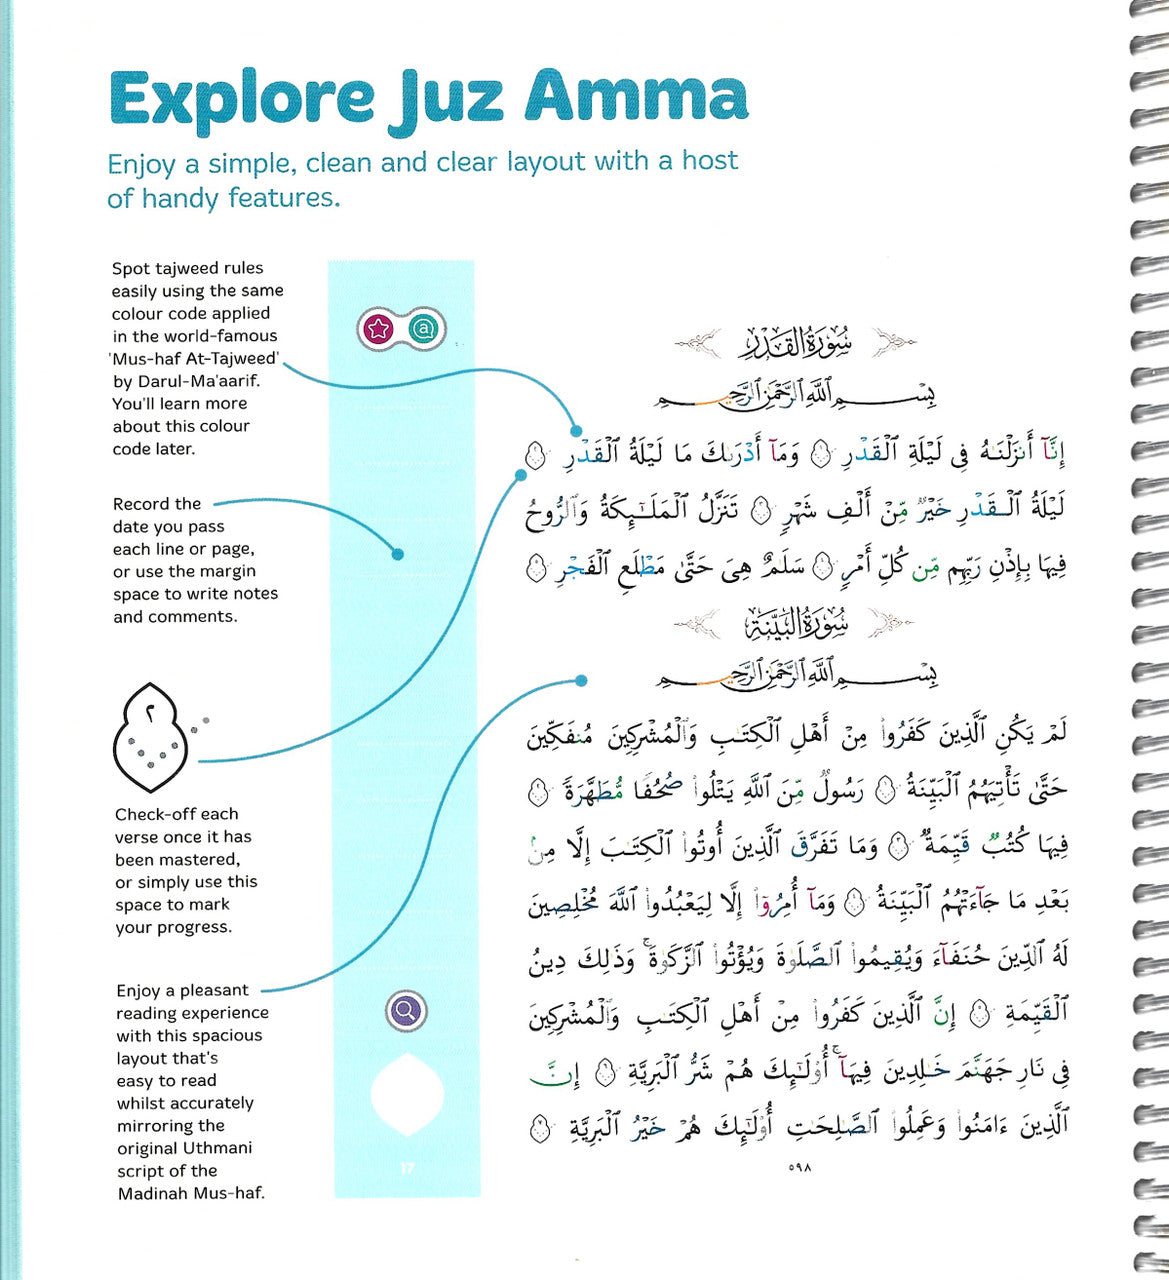 Explore Juz Amma
Enjoy a simple, clean and clear layout with a host
of handy features.
Spot tajweed rules
easily using the same
colour code applied
in the world-famous
'Mus-haf At-Tajweed'
by Darul-Ma'aarif.
You'll learn more
about this colour
code later.
Record the
date you pass
each line or page,
or use the margin
space to write notes
and comments.
٢
Check-off each
verse once it has
been mastered,
or simply use this
space to mark
your progress.
Enjoy a pleasant
reading experience
with this spacious
layout that's
easy to read
whilst accurately
mirroring the
original Uthmani
script of the
Madinah Mus-haf.
a
17
سُورَةُ القَدْرِ
بِسْمِ ٱللَّهِ ٱلرَّحْمَٰنِ ٱلرَّحِيمِ
إِنَّآ أَنزَلْنَٰهُ فِى لَيْلَةِ ٱلْقَدْرِ ١ وَمَآ أَدْرَىٰكَ مَا لَيْلَةُ ٱلْقَدْرِ ٢
لَيْلَةُ ٱلْقَدْرِ خَيْرٌ مِّنْ أَلْفِ شَهْرٍ ٣ تَنَزَّلُ ٱلْمَلَٰٓئِكَةُ وَٱلرُّوحُ
فِيهَا بِإِذْنِ رَبِّهِم مِّن كُلِّ أَمْرٍ ٤ سَلَٰمٌ هِىَ حَتَّىٰ مَطْلَعِ ٱلْفَجْرِ ٥
سُورَةُ البَيِّنَةِ
بِسْمِ ٱللَّهِ ٱلرَّحْمَٰنِ ٱلرَّحِيمِ
لَمْ يَكُنِ ٱلَّذِينَ كَفَرُوا۟ مِنْ أَهْلِ ٱلْكِتَٰبِ وَٱلْمُشْرِكِينَ مُنفَكِّينَ
حَتَّىٰ تَأْتِيَهُمُ ٱلْبَيِّنَةُ ١ رَسُولٌ مِّنَ ٱللَّهِ يَتْلُوا۟ صُحُفًا مُّطَهَّرَةً ٢
فِيهَا كُتُبٌ قَيِّمَةٌ ٣ وَمَا تَفَرَّقَ ٱلَّذِينَ أُوتُوا۟ ٱلْكِتَٰبَ إِلَّا مِنۢ
بَعْدِ مَا جَآءَتْهُمُ ٱلْبَيِّنَةُ ٤ وَمَآ أُمِرُوٓا۟ إِلَّا لِيَعْبُدُوا۟ ٱللَّهَ مُخْلِصِينَ
لَهُ ٱلدِّينَ حُنَفَآءَ وَيُقِيمُوا۟ ٱلصَّلَوٰةَ وَيُؤْتُوا۟ ٱلزَّكَوٰةَ ۚ وَذَٰلِكَ دِينُ
ٱلْقَيِّمَةِ ٥ إِنَّ ٱلَّذِينَ كَفَرُوا۟ مِنْ أَهْلِ ٱلْكِتَٰبِ وَٱلْمُشْرِكِينَ
فِى نَارِ جَهَنَّمَ خَٰلِدِينَ فِيهَآ ۚ أُو۟لَٰٓئِكَ هُمْ شَرُّ ٱلْبَرِيَّةِ ٦ إِنَّ
ٱلَّذِينَ ءَامَنُوا۟ وَعَمِلُوا۟ ٱلصَّٰلِحَٰتِ أُو۟لَٰٓئِكَ هُمْ خَيْرُ ٱلْبَرِيَّةِ ٧
٥٩٨